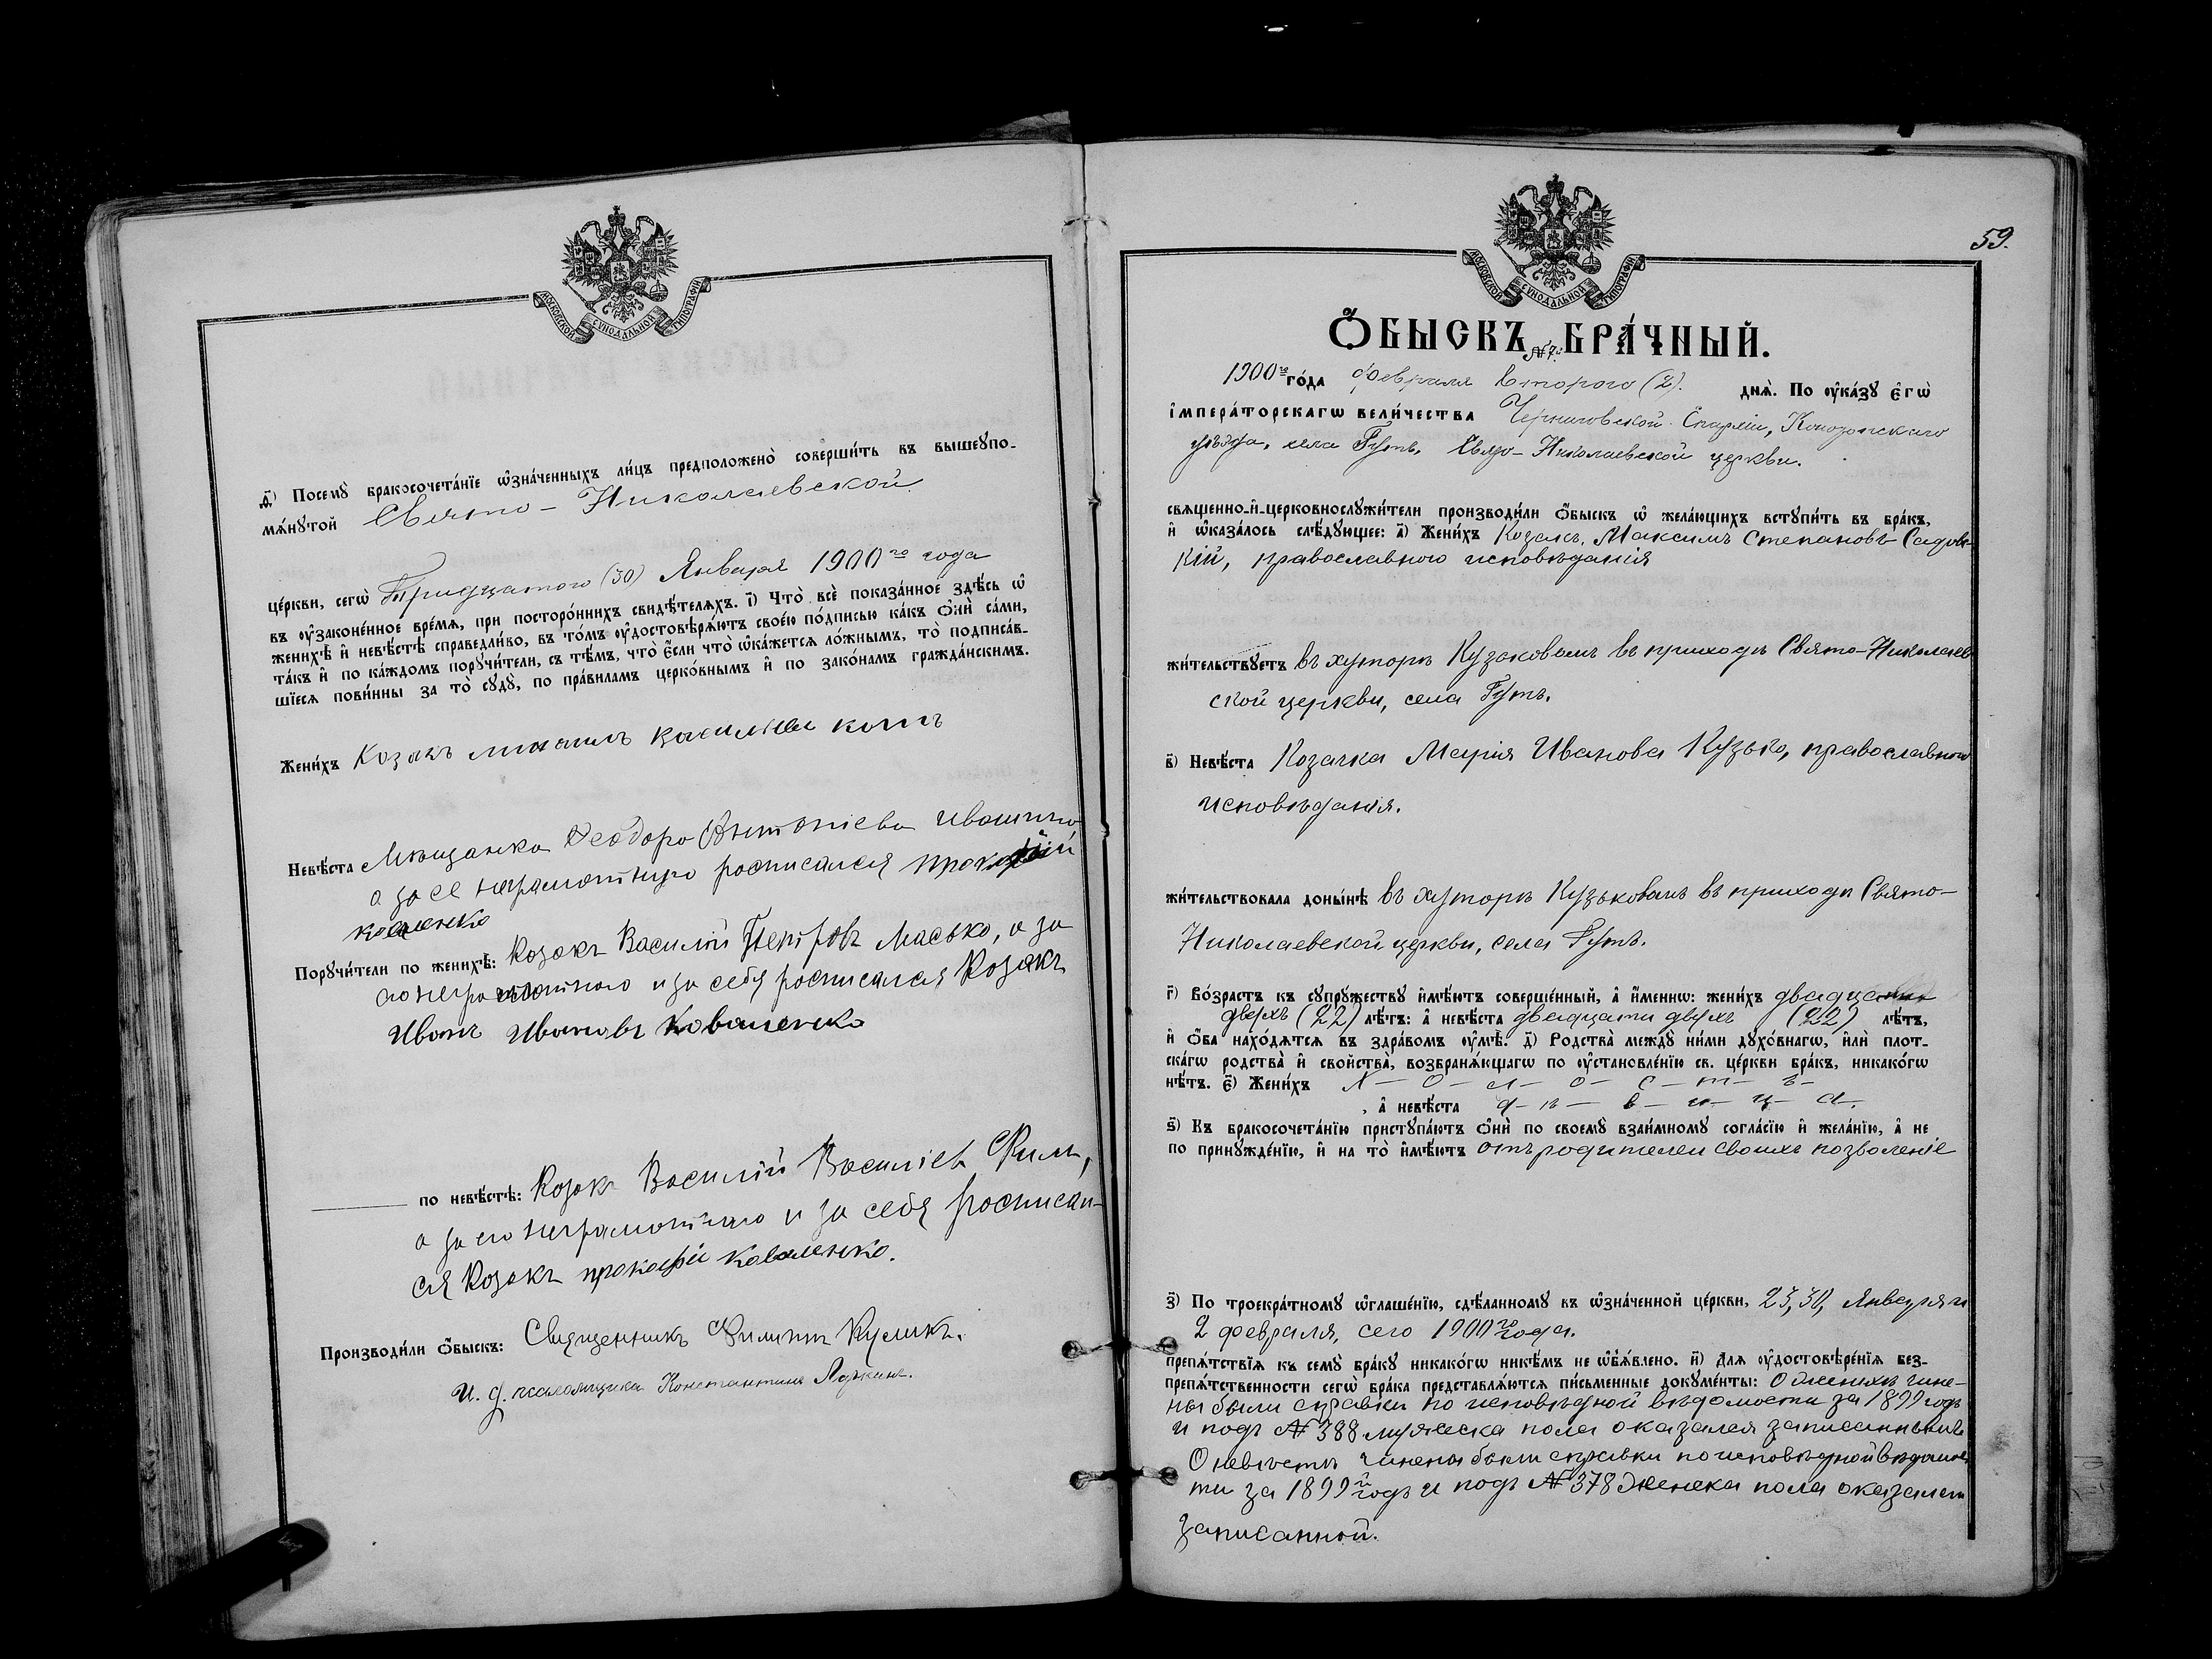 МОСКОВСКОЙ СѴНОДАЛЬНОЙ ТИПОГРАФІИ
д҃) Посемꙋ̀ бракосочета́нїе ѡ҆зна́ченныхъ ли́цъ предположено̀ соверши́ть въ вышеꙋпо-
мѧ́нꙋтой Свято-Николаевской
це́ркви, сегѡ̀ Тридцатого (30) Января 1900го года
въ ᲂу҆законе́нное вре́мѧ, при посторо́ннихъ свидѣ́телѧхъ. і҃) Что̀ всѐ показа́нное здѣ́сь ѡ҆
женихѣ̀ и҆ невѣ́стѣ справедли́во, въ то́мъ ᲂу҆достовѣрѧ́ютъ свое́ю по́дписью ка́къ ѻ҆нѝ са́ми,
та́къ и҆ по ка́ждомъ порꙋчи́тели, съ тѣ́мъ, что̀ є҆́сли что̀ ѡ҆ка́жетсѧ ло́жнымъ, то̀ подписа́в-
шїесѧ пови́нны за то̀ сꙋдꙋ̀, по пра́виламъ церко́внымъ и҆ по зако́намъ гражда́нскимъ.
Жени́хъ Козакъ
Невѣ́ста Мѣщанка Ѳеодора Антоніева
а за ее неграмотную росписался
Порꙋчи́тели по женихѣ̀: Козакъ Василій Петровъ Масько, а за
его неграмотного и за себя росписался Козакъ
Иванъ Ивановъ Коваленко
по невѣ́стѣ: Козакъ Василій Василіев
а за его неграмотнаго и за себя росписал-
ся Козакъ прокофій Коваленко.
Производи́ли ѻ҆́быскъ: Священникъ Филиппъ Куликъ.
И. д. псаломщика Константинъ
59.
МОСКОВСКОЙ СѴНОДАЛЬНОЙ ТИПОГРАФІИ
Ѻ҆́БЫСКЪ №7й БРА́ЧНЫЙ.
1900го го́да Февраля второго (2). днѧ̀. По ᲂу҆ка́зꙋ є҆гѡ̀
і҆мпера́торскагѡ вели́чества Черниговской Епархіи, Конотопскаго
уѣзда, села Гутъ, Свято-Николаевской церкви.
свѧщенно-и҆-церковнослꙋжи́тели производи́ли ѻ҆́быскъ ѡ҆ жела́ющихъ встꙋпи́ть въ бра́къ,
и҆ ѡ҆каза́лось слѣ́дꙋющее: а҃) Жени́хъ Козакъ, Максимъ Степановъ Садовс-
кій, православного исповѣданія
жи́тельствꙋетъ въ хуторѣ Кузьковомъ въ приходѣ Свято-Николаев
ской церкви, села Гутъ.
в҃) Невѣ́ста Козачка Марія Иванова Кузько, православного
исповѣданія.
жи́тельствовала доны́нѣ въ хуторѣ Кузьковомъ въ приходѣ Свято-
Николаевской церкви, села Гутъ.
г҃) Во́зрастъ къ сꙋпрꙋ́жествꙋ и҆мѣ́ютъ соверше́нный, а҆ и҆́меннѡ: жени́хъ двадцати
двухъ (22) лѣ́тъ: а҆ невѣ́ста двадцати двухъ (22) лѣ́тъ,
и҆ ѻ҆́ба нахо́дѧтсѧ въ здра́вомъ ᲂу҆мѣ̀. д҃) Родства̀ междꙋ̀ ни́ми дꙋхо́внагѡ, и҆лѝ плот-
ска́гѡ родства̀ и҆ свойства̀, возбранѧ́ющагѡ по ᲂу҆становле́нїю св. це́ркви бра́къ, никако́гѡ
нѣ́тъ. є҃) Жени́хъ х—о—л—о—с—т—ъ—
, а҆ невѣ́ста д—ѣ—в—и—ц—а—.
ѕ҃) Къ бракосочета́нїю пристꙋпа́ютъ ѻ҆нѝ по своемꙋ̀ взаи́мномꙋ согла́сїю и҆ жела́нїю, а҆ не
по принꙋжде́нїю, и҆ на то̀ и҆мѣ́ютъ отъ родителей своихъ позволеніе
з҃) По троекра́тномꙋ ѡ҆глаше́нїю, сдѣ́ланномꙋ въ ѡ҆зна́ченной це́ркви, 23, 30, Января и
2 февраля, сего 1900го года.
препѧ́тствїѧ къ семꙋ̀ бра́кꙋ никако́гѡ никѣ́мъ не ѡ҆б̾ѧ́влено. и҃) Длѧ ᲂу҆достовѣре́нїѧ без-
препѧ́тственности сегѡ̀ бра́ка представлѧ́ютсѧ пи́сьменные докꙋме́нты: О женихѣ чине-
ны были справки по исповѣдной вѣдомости за 1899 годъ
и подъ № 388 мужеска пола оказался записаннымъ
О невѣстѣ чинены были справки по исповѣдной вѣдомос
ти за 1899й годъ и подъ № 378 женска пола оказалась
записанной.